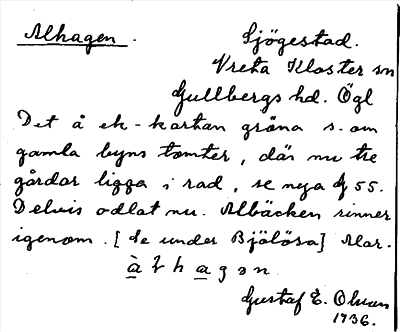 Alhagen.
Sjögestad.
Vreta Kloster sn
Gullbergs hd. Ögl
Det å ek-kartan gröna s. om
gamla byns tomter, där nu tre
gårdar ligga i rad, se nya 55.
Delvis odlat nu. Albäcken rinner
igenom. [Se under Bjölösa] Alar.
Gustaf E.
1936.